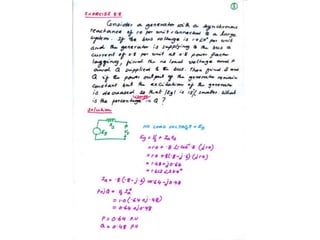 ①
EXERCISE 8.8
Consider a generator with a synchronous
reactance of 1.0 per unit connected to a large
system. If the bus voltage is 1.0∠0° per unit
and the generator is supplying to the bus a
current of 0.8 per unit at 0.8 power factor
lagging, find the no load voltage and P
and Q supplied to the bus. Then find P and
Q if the power output of the generator remain
constant but the excitation of the generator
is decreased so that |Eg| is 15% smaller. What
is the percentage change in Q?
Solution
NO LOAD VOLTAGE = Eg
Eg = Vt + Ia Xs
= 1.0 +
= 1.0 + .8(.8 - j.6)(j1.0)
= 1.48 + j0.64
Ia = .8(.8 - j.6) = 0.64 - j0.48
P + jQ = Vt Ia*
= 1.0(.64 + j.48)
= 0.64 + j0.48
P = 0.64 P.U
Q = 0.48 P.U